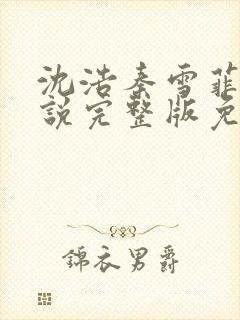 沈浩秦雪菲
說完整版免
錦衣男爵